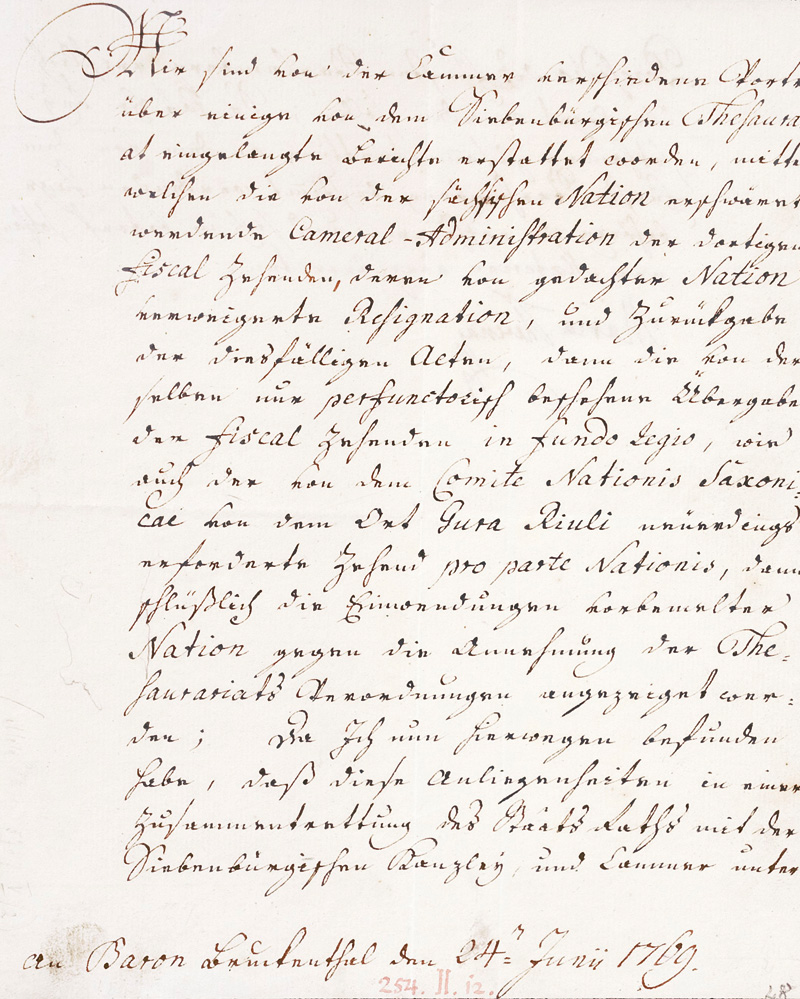 Mir sind von der Cammer verschiedene Vortr
über einige von dem Siebenbürgischen Thesaura
at eingelangte Berichte erstattet worden, mitte
welchen die von der sächsischen Nation erschwäret
werdende Cameral-Administration der dortigen
Fiscal Zehenden, deren von gedachter Nation
verweigerte Resignation, und Zurückgabe
der diesfälligen Acten, dann die von der
selben nur perfunctorisch beschehene Übergabe
der Fiscal Zehenden in fundo Regio, wie
auch der von dem Comite Nationis Saxoni=
cae von dem Ort Gura Riuli neüerdings
erforderte Zehend pro parte Nationis, dann
schlüßlich die Einwendungen vorbemelter
Nation gegen die Annehmung der The=
saurariats Verordnungen angezeiget wer=
den; Da Ich nun hierwegen befunden
habe, daß diese Anliegenheiten in einer
Zusammentrettung des Staats Raths mit der
Siebenbürgischen Kanzley, und Cammer unter
an Baron Bruckenthal den 24.n Junii 1769.
254. II. 12.
48